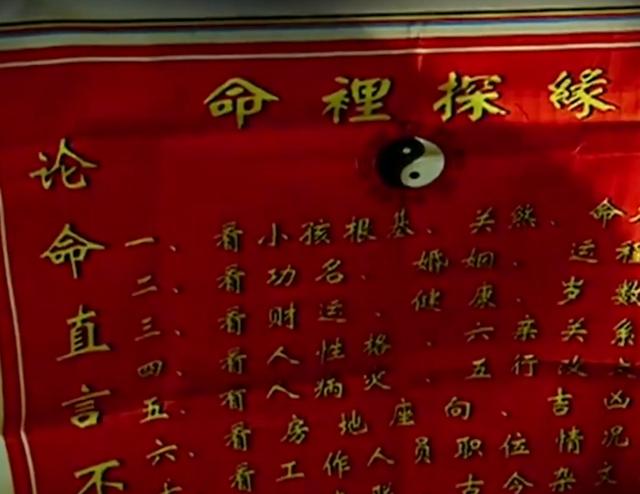 命裡探緣
论命直言不
一、看小孩根基、关煞、命
二、看功名、婚姻、运程
三、看财运、健康、岁数
四、看人性格、六亲关系
五、病、五行改
六、看房地座向、吉凶
看工作人员职位情况
古今杂文